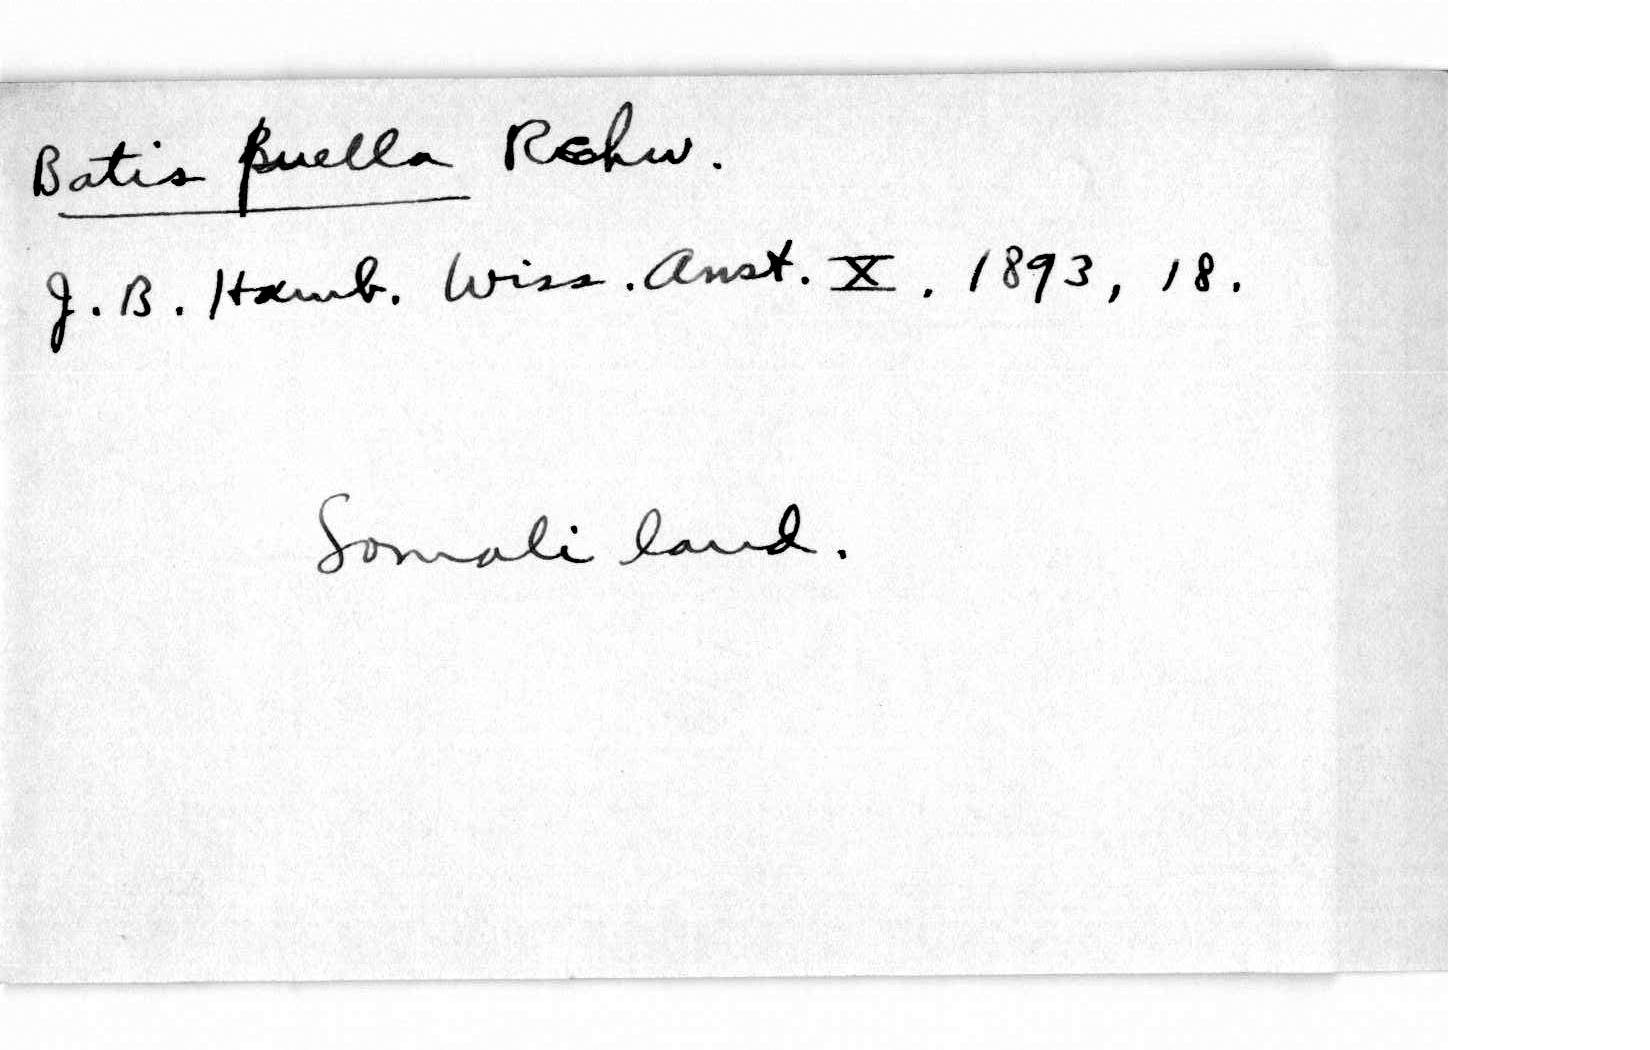 Batis puella Rchw.
J. B. Hamb. Wiss. Anst. X. 1893, 18.
Somali land.